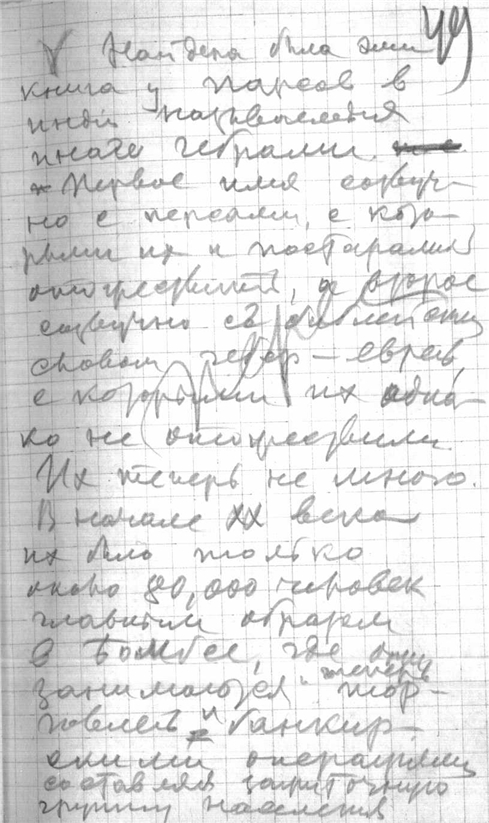 49
Найдена была эта
книга у парсов в
Индии называемых
иначе гебрами.
Первое имя созвуч-
но с персами, с кото-
рыми их и постарались
отожествить, а второе
созвучно с библейским
словом гебер – еврей,
с которыми их одна-
ко не отожествили.
Их теперь не много.
В начале XX века
их было только
около 80,000 человек
главным образом
в Бомбее, где они
теперь
занимаются тор-
говлей и банкир-
скими операциями
составляя зажиточную
группу населения